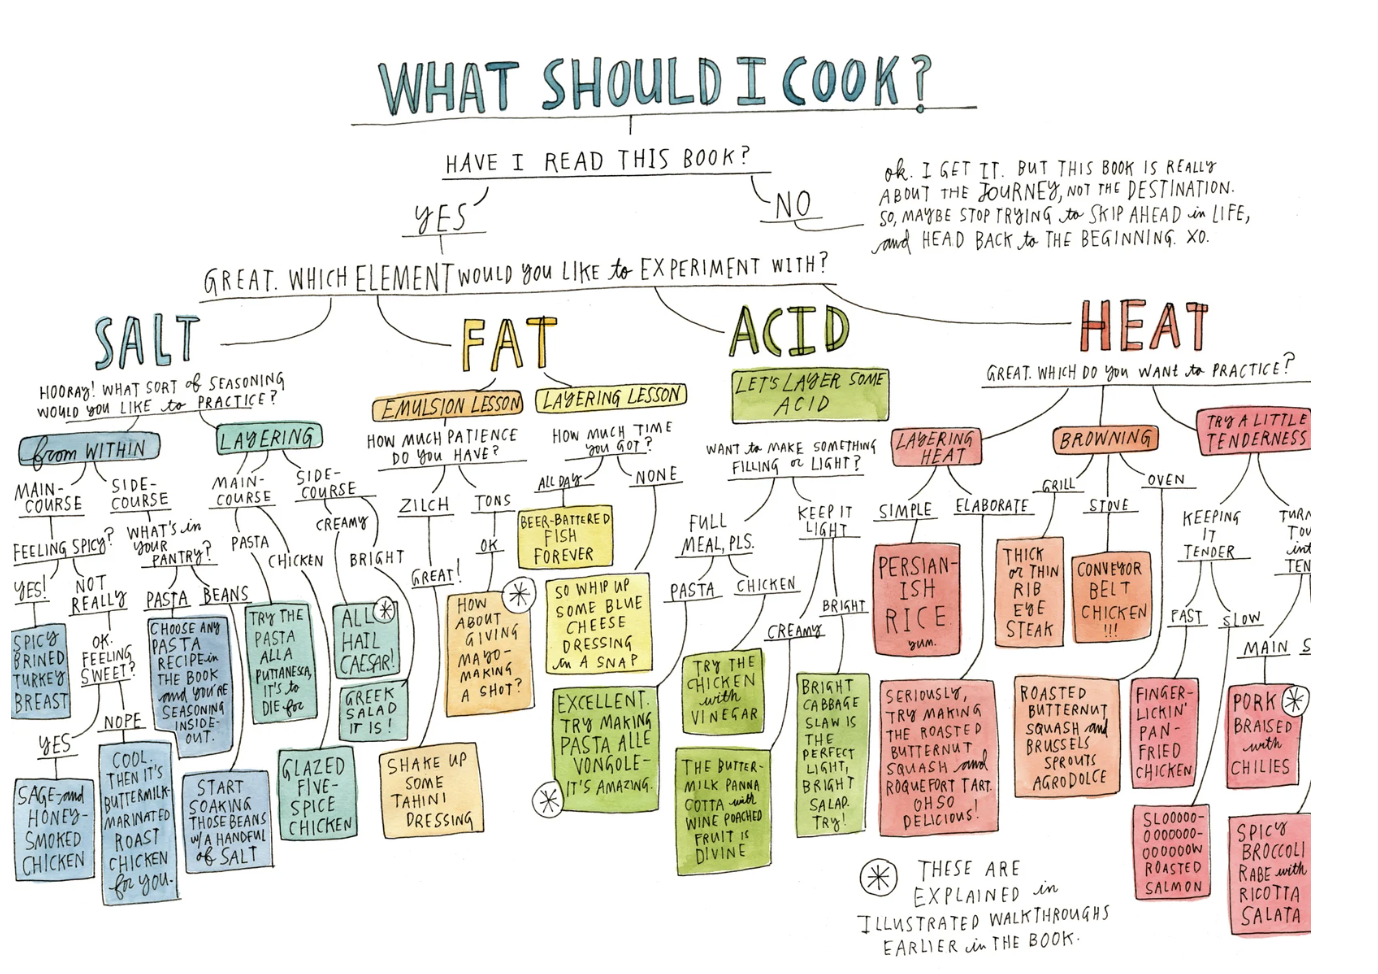 WHAT SHOULD I COOK?
HAVE I READ THIS BOOK?
YES
NO
ok. I GET IT. BUT THIS BOOK IS REALLY
ABOUT THE JOURNEY, NOT THE DESTINATION.
SO, MAYBE STOP TRYING to SKIP AHEAD in LIFE,
and HEAD BACK to THE BEGINNING. XO.
GREAT. WHICH ELEMENT WOULD YOU LIKE to EXPERIMENT WITH?
SALT
HOORAY! WHAT SORT of SEASONING
WOULD YOU LIKE to PRACTICE?
from WITHIN
MAIN-
COURSE
FEELING SPICY?
YES!
SPICY
BRINED
TURKEY
BREAST
NOT
REALLY
OK.
FEELING
SWEET?
YES
SAGE-and
HONEY-
SMOKED
CHICKEN
NOPE
COOL.
THEN IT'S
BUTTERMILK-
MARINATED
ROAST
CHICKEN
for YOU.
SIDE-
COURSE
WHAT'S in
YOUR
PANTRY?
PASTA
CHOOSE ANY
PASTA
RECIPE in
THE BOOK
and YOU'RE
SEASONING
INSIDE-
OUT.
BEANS
START
SOAKING
THOSE BEANS
w/A HANDFUL
of SALT
LAYERING
MAIN-
COURSE
PASTA
TRY THE
PASTA
ALLA
PUTTANESCA,
IT'S to
DIE for
CHICKEN
GLAZED
FIVE-
SPICE
CHICKEN
SIDE-
COURSE
CREAMY
ALL
HAIL
CAESAR!
BRIGHT
GREEK
SALAD
IT IS!
FAT
EMULSION LESSON
HOW MUCH PATIENCE
DO YOU HAVE?
ZILCH
GREAT!
SHAKE UP
SOME
TAHINI
DRESSING
TONS
OK
HOW
ABOUT
GIVING
MAYO-
MAKING
A SHOT?
LAYERING LESSON
HOW MUCH TIME
YOU GOT?
ALL DAY
BEER-BATTERED
FISH
FOREVER
NONE
SO WHIP UP
SOME BLUE
CHEESE
DRESSING
in A SNAP
ACID
LET'S LAYER SOME
ACID
WANT to MAKE SOMETHING
FILLING or LIGHT?
FULL
MEAL, PLS.
PASTA
EXCELLENT.
TRY MAKING
PASTA ALLE
VONGOLE-
IT'S AMAZING.
CHICKEN
TRY THE
CHICKEN
with
VINEGAR
KEEP IT
LIGHT
CREAMY
THE BUTTER-
MILK PANNA
COTTA with
WINE POACHED
FRUIT IS
DIVINE
BRIGHT
BRIGHT
CABBAGE
SLAW IS
THE
PERFECT
LIGHT,
BRIGHT
SALAD.
TRY!
HEAT
GREAT. WHICH DO YOU WANT to PRACTICE?
LAYERING
HEAT
SIMPLE
PERSIAN-
ISH
RICE
yum.
ELABORATE
SERIOUSLY,
TRY MAKING
THE ROASTED
BUTTERNUT
SQUASH and
ROQUEFORT TART.
OH SO
DELICIOUS!
BROWNING
GRILL
THICK
or THIN
RIB
EYE
STEAK
STOVE
CONVEYOR
BELT
CHICKEN
!!!
OVEN
ROASTED
BUTTERNUT
SQUASH and
BRUSSELS
SPROUTS
AGRODOLCE
TRY A LITTLE
TENDERNESS
KEEPING
IT
TENDER
FAST
FINGER-
LICKIN'
PAN-
FRIED
CHICKEN
SLOW
SLOOOOO-
OOOOOOO-
OOOOOOW
ROASTED
SALMON
TURN
TOU
int
TEN
MAIN
PORK
BRAISED
with
CHILIES
S
SPICY
BROCCOLI
RABE with
RICOTTA
SALATA
THESE ARE
EXPLAINED in
ILLUSTRATED WALKTHROUGHS
EARLIER in THE BOOK.